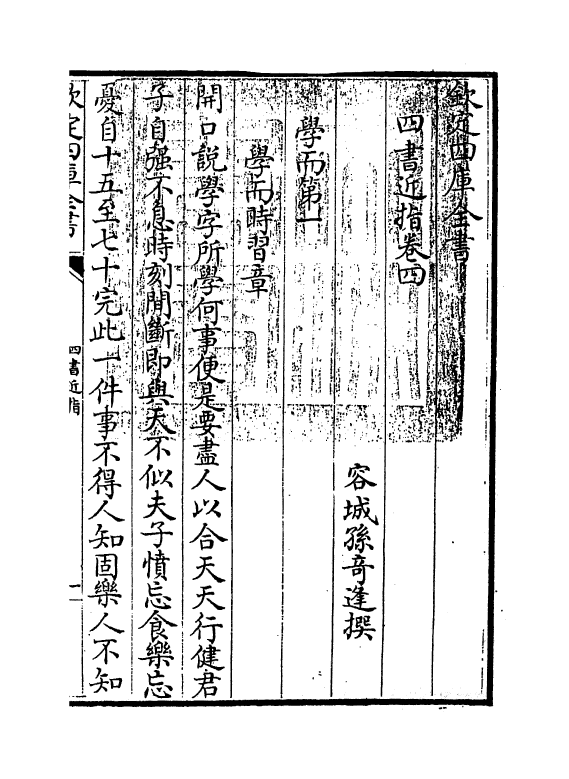 欽定四庫全書
四書近指卷四
容城孫奇逢撰
學而第一
學而時習章
開口說學字所學何事便是要盡人以合天天行健君
子自强不息時刻間斷即與天不似夫子憤忘食樂忘
憂自十五至七十完此一件事不得人知固樂人不知
欽定四庫全書
四書近指
一